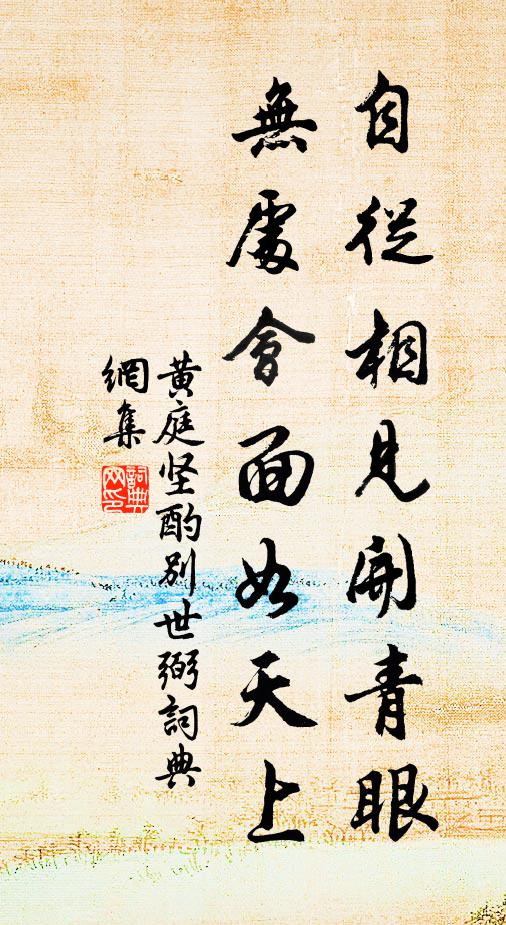 自從相見開青眼
無處會面如天上
黃庭坚酌别世弼詞典
網集
詞典
网印